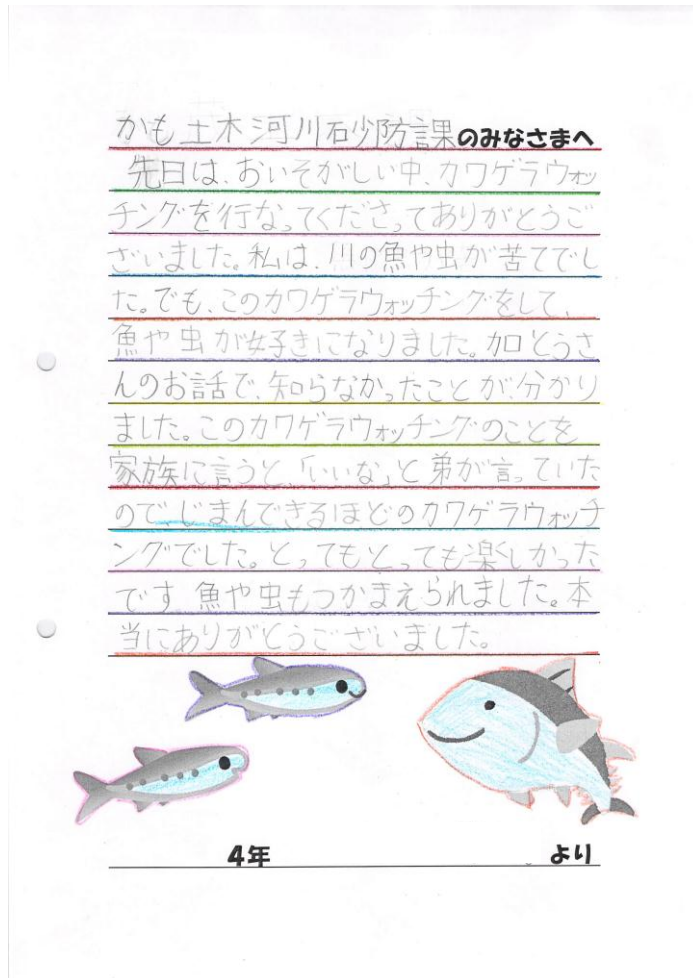 かも土木河川砂防課のみなさまへ
先日は、おいそがしい中、カワゲラウォッ
チングを行なってくださってありがとうご
ざいました。私は、川の魚や虫が苦てでし
た。でも、このカワゲラウォッチングをして、
魚や虫が好きになりました。加とうさ
んのお話で、知らなかったことが分かり
ました。このカワゲラウォッチングのことを
家族に言うと、「いいな」と弟が言っていた
ので、じまんできるほどのカワゲラウォッチ
ングでした。とってもとっても楽しかった
です。魚や虫もつかまえられました。本
当にありがとうございました。
4年 より